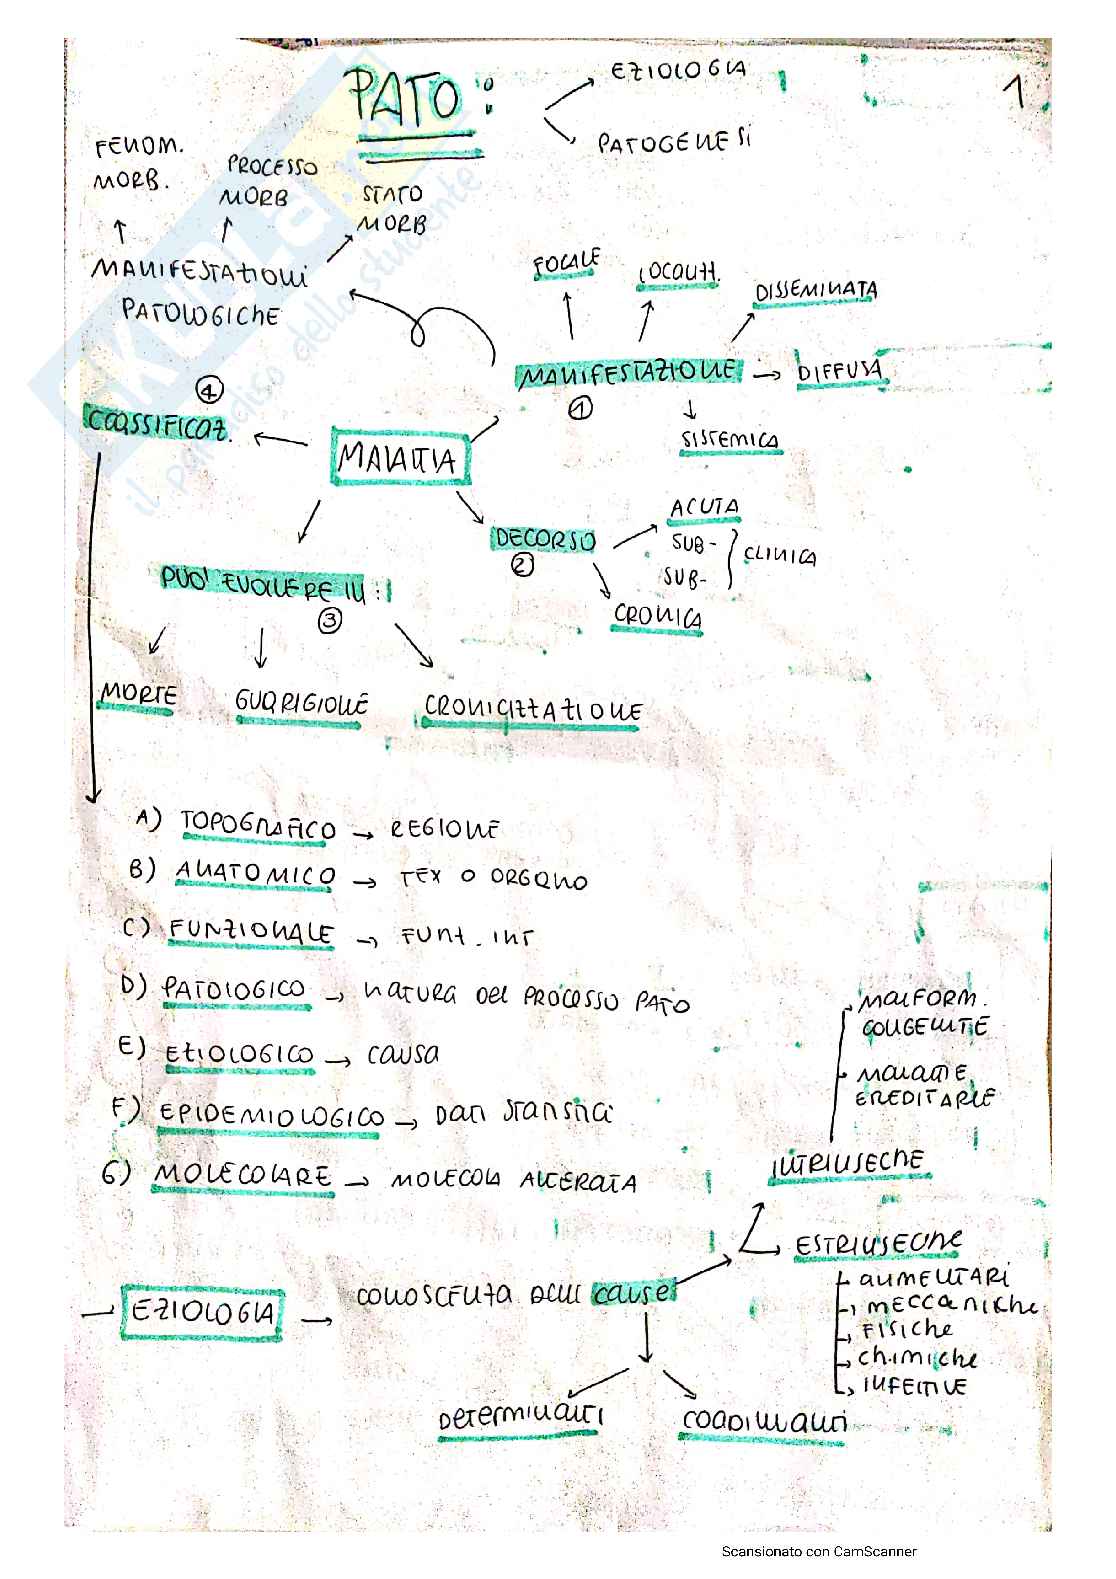 PATO:
EZIOLOGIA
PATOGENESI
1
FENOM.
MORB.
PROCESSO
MORB
STATO
MORB
MANIFESTAZIONI
PATOLOGICHE
FOCALE
LOCALIZZ.
DISSEMINATA
MANIFESTAZIONE
DIFFUSA
1
SISTEMICA
4
CLASSIFICAZ.
MALATTIA
DECORSO
2
ACUTA
SUB-
SUB-
CLINICA
CRONICA
PUO' EVOLVERE IN:
3
MORTE
GUARIGIONE
CRONICIZZAZIONE
A) TOPOGRAFICO → REGIONE
B) ANATOMICO → TEX O ORGANO
C) FUNZIONALE → FUNZ. INT
D) PATOLOGICO → NATURA DEL PROCESSO PATO
E) EZIOLOGICO → CAUSA
F) EPIDEMIOLOGICO → DATI STATISTICI
G) MOLECOLARE → MOLECOLA ALTERATA
MALFORM.
CONGENITE
MALATTIE
EREDITARIE
INTRINSECHE
ESTRINSECHE
ALIMENTARI
MECCANICHE
FISICHE
CHIMICHE
INFETTIVE
EZIOLOGIA → CONOSCENZA DELLE CAUSE
DETERMINANTI
COADIUVANTI
il paradiso dello studente
Scansionato con CamScanner